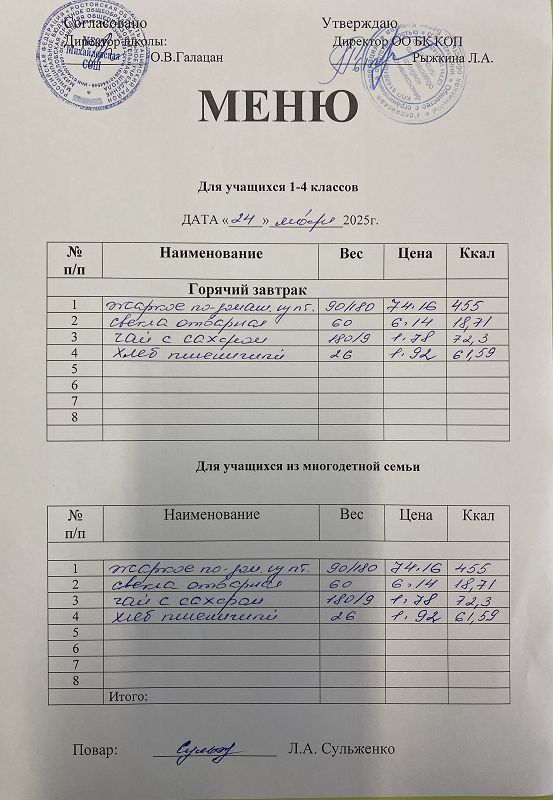 Согласовано Утверждаю
Директор школы: Директор ОО БК КОП
О.В.Галацан Рыжкина Л.А.
Михайловская
СОШ
МЕНЮ
Для учащихся 1-4 классов
ДАТА «24» января 2025г.
№ п/п Наименование Вес Цена Ккал
Горячий завтрак
1 жаркое по-домаш. из пт. 90/180 74.16 455
2 свекла отварная 60 6.14 18,71
3 чай с сахаром 180/9 1.78 72,3
4 хлеб пшеничный 26 1.92 61,59
5
6
7
8
Для учащихся из многодетной семьи
№ п/п Наименование Вес Цена Ккал
1 жаркое по-дом. из пт. 90/180 74.16 455
2 свекла отварная 60 6.14 18,71
3 чай с сахаром 180/9 1.78 72,3
4 хлеб пшеничный 26 1.92 61,59
5
6
7
8
Итого:
Повар: Л.А. Сульженко